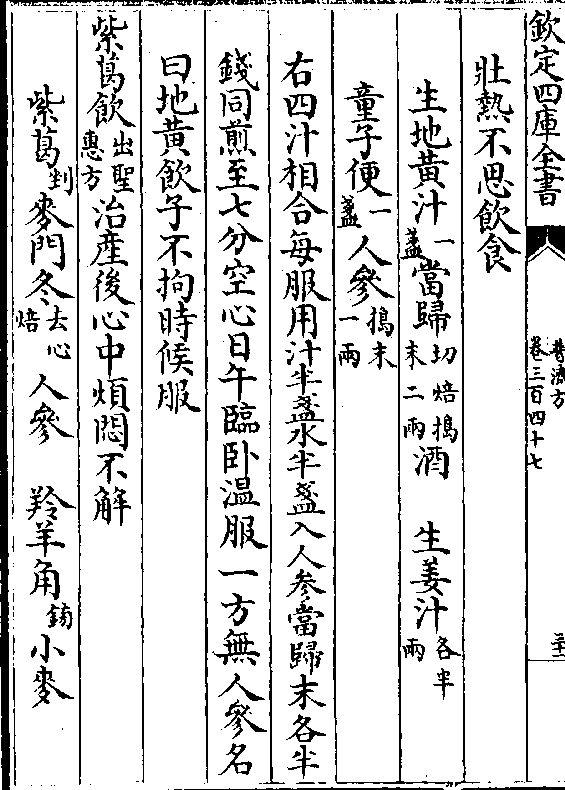 欽定四庫全書
普濟方
卷三百四十七
壯熱不思飲食
生地黃汁一盞當歸切焙搗末二兩酒 生姜汁各半兩
童子便一盞人參搗末一兩
右四汁相合每服用汁半盞水半盞入人参當歸末各半
錢同煎至七分空心日午臨卧温服一方無人參名
曰地黃飲子不拘時候服
紫葛飲出聖惠方治產後心中煩悶不解
紫葛剉麥門冬去心焙人參 羚羊角鎊小麥